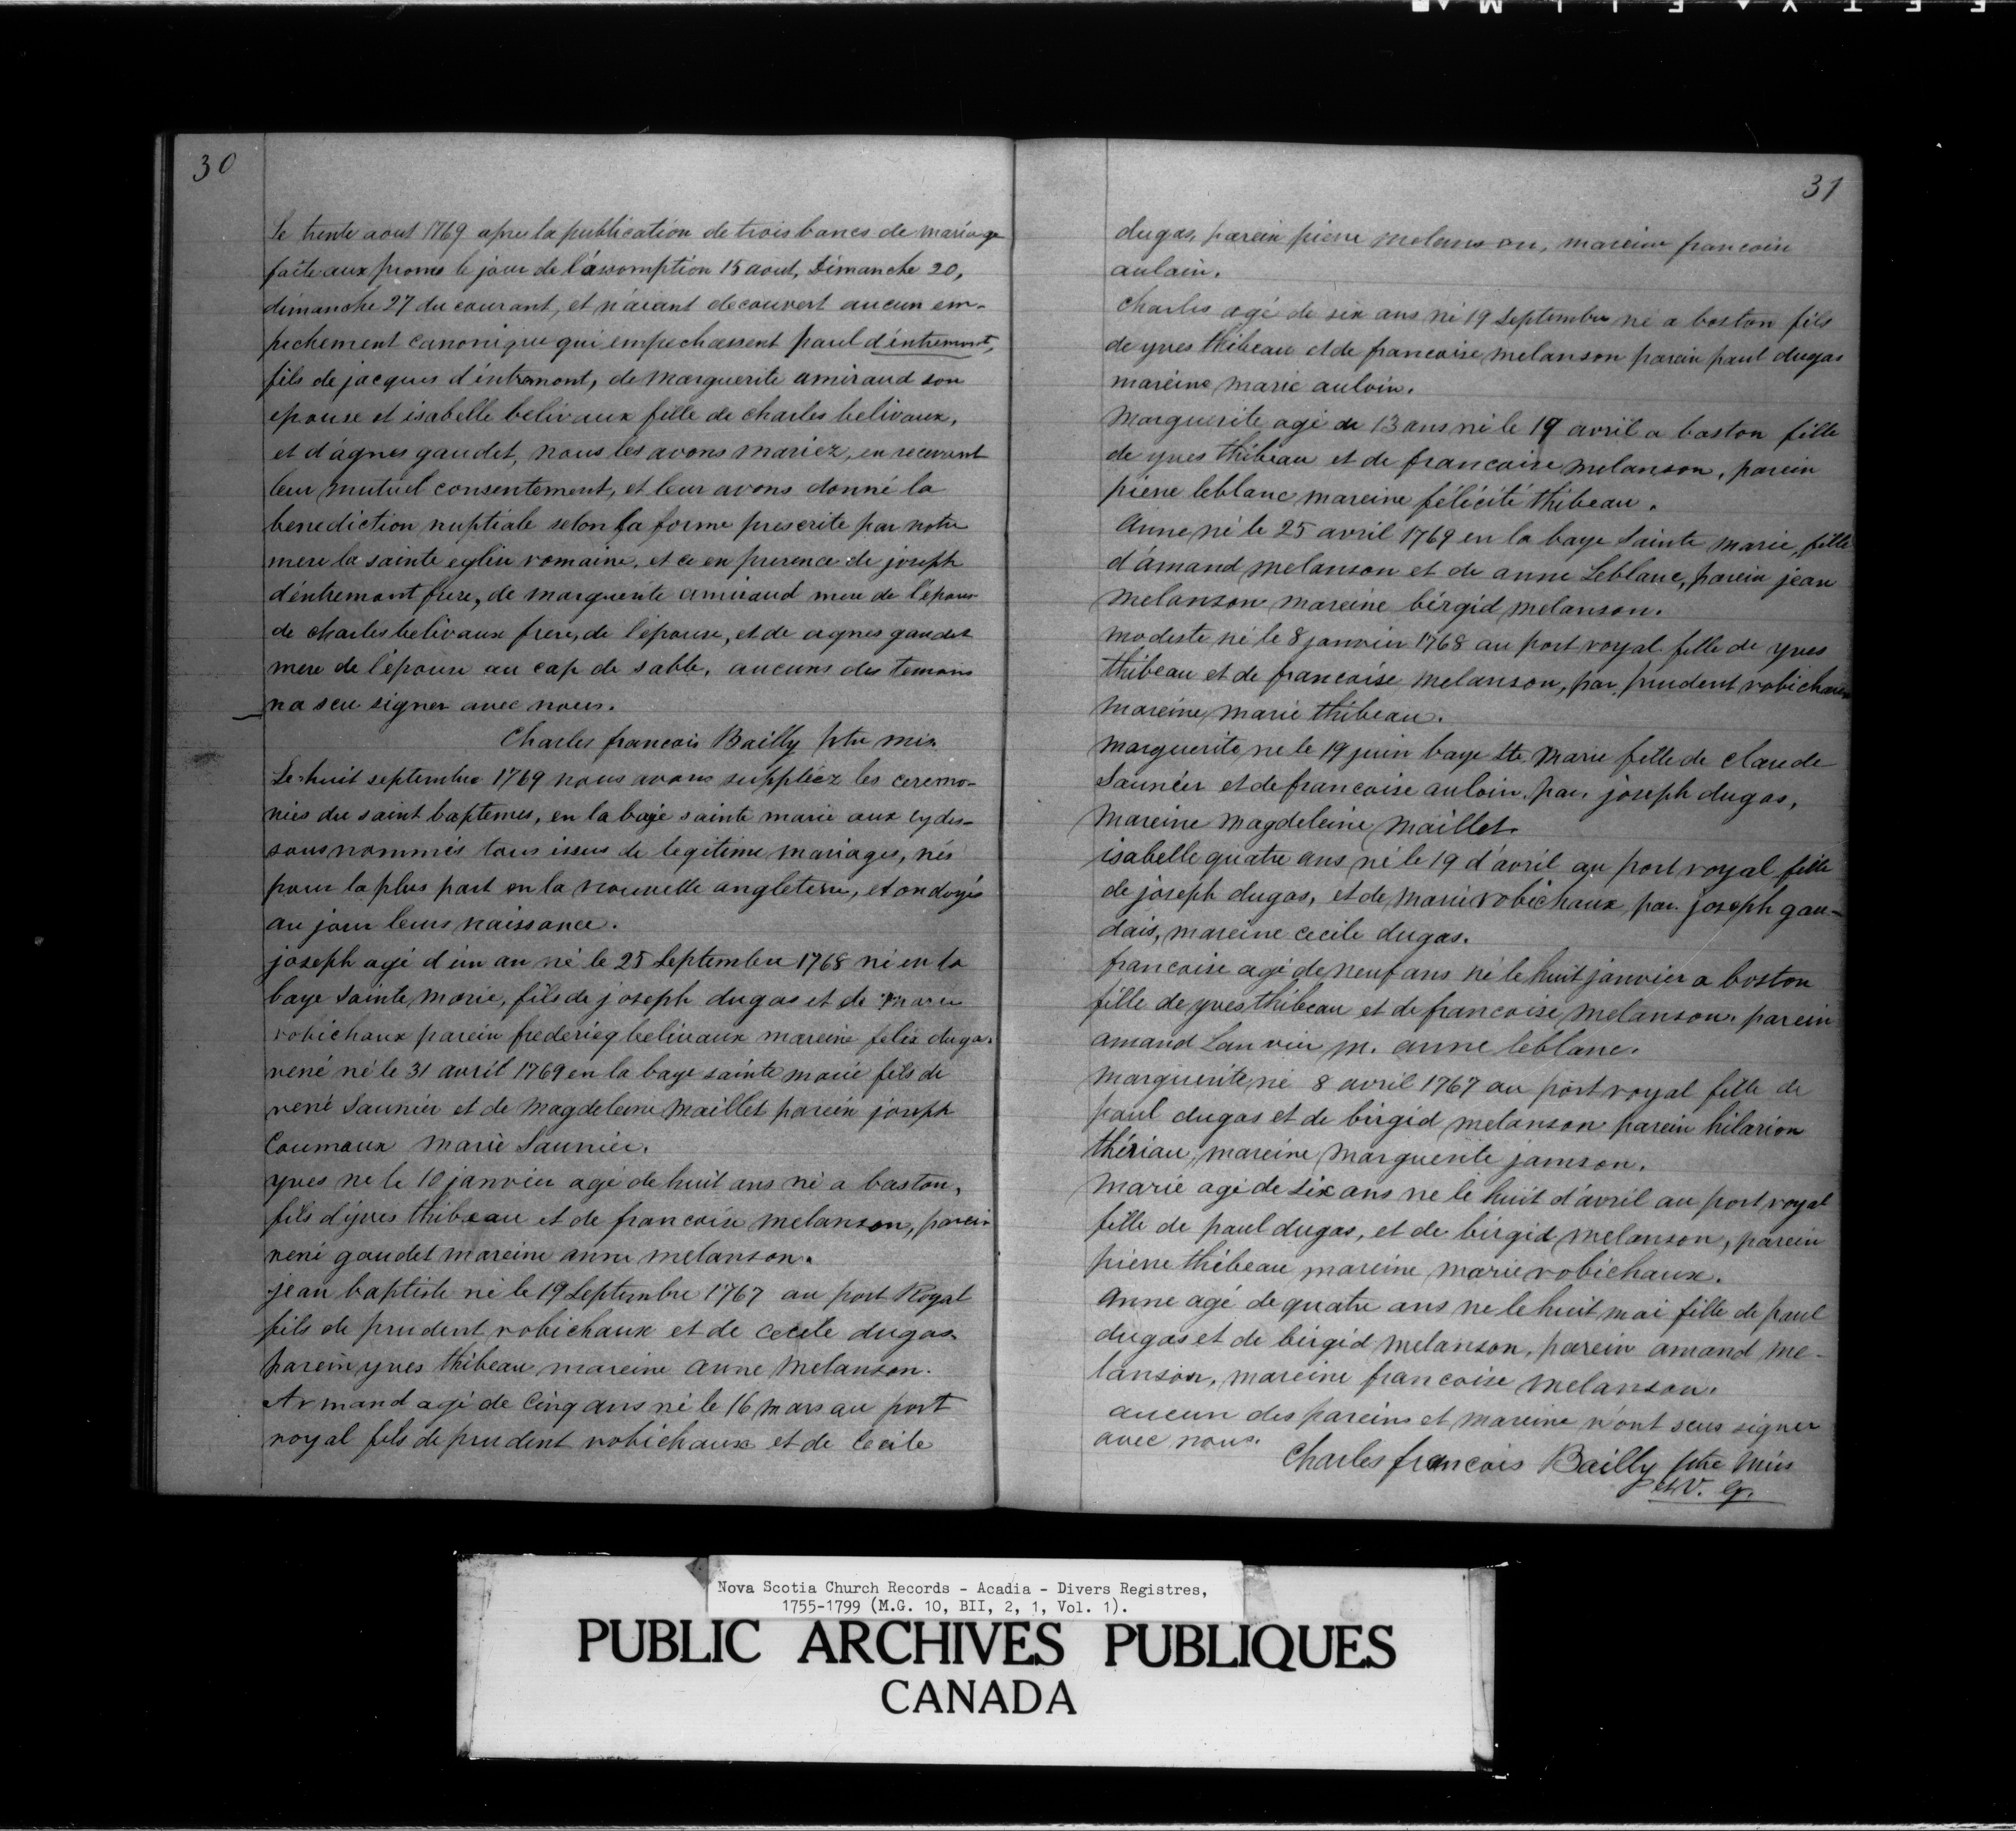 30
Le trente aout 1769 apres la publication de trois bancs de mariage
faite aux prone le jour de l'assomption 15 aout, Dimanche 20,
dimanche 27 du courant, et n'aiant decouvert aucun em-
pechement canonique qui empechassent paul d'éntremont,
fils de jacques d'éntremont, de marguerite amiraud son
epouse et isabelle belivaux fille de charles belivaux,
et d'agnes gaudet, nous les avons mariez, en recevant
leur mutuel consentement, et leur avons donné la
benediction nuptiale selon la forme prescrite par notre
mere la sainte eglise romaine, et ce en presence de joseph
d'éntremont frere, de marguerite amiraud mere de l'épouse
de charles belivaux frere, de l'épouse, et de agnes gaudet
mere de l'épouse au cap de sable, aucuns des temoins
na seu signer avec nous.
Charles francois Bailly ptre mis.
Le huit septembre 1769 nous avons suppléez les ceremo-
nies du saint baptemes, en la baye sainte marie aux cydes-
sous nommés tous issus de legitime mariages, nés
pour la plus part en la nouvelle angleterre, et ondoyés
au jour leurs naissance.
joseph agé d'un an né le 25 Septembre 1768 né en la
baye Sainte Marie, fils de joseph dugas et de marie
robichaux parein frederieq belivaux mareine felix dugas
rené né le 31 avril 1769 en la baye sainte marie fils de
rené Saunier et de Magdeleine Maillet parein joseph
Coumaux marie Saunier.
yves ne le 10 janvier agé de huit ans né a baston,
fils d'yves thibeau et de francoise melanson, parein
rené gaudet mareine anne melanson.
jean baptiste né le 19 Septembre 1767 au port Royal
fils de prudent robichaux et de cecele dugas.
parein yves thibeau mareine anne Melanson.
Armand agé de Cinq ans né le 16 mars au port
royal fils de prudent robichaux et de Cecile
31
dugas, parein piere melanson, mareine francoise
auloin.
Charles agé de six ans né 19 Septembre né a boston fils
de yves thibeau et de francoise melanson parein paul dugas
mareine marie auloin.
Marguerite agé de 13 ans né le 19 avril a baston fille
de yves thibeau et de francoise melanson, parein
piere leblanc mareine félécité thibeau.
Anne né le 25 avril 1769 en la baye Sainte Marie, fille
d'ámand melanson et de anne Leblanc, parein jean
melanson mareine birgid melanson.
modeste né le 8 janvier 1768 au port royal fille de yves
thibeau et de francoise melanson, par, prudent robichaux
Mareine marie thibeau.
Marguerite ne le 19 juin baye Ste Marie fille de claude
Saunéer et de francoise auloin, par joseph dugas,
Mareine magdeleine Maillet.
isabelle quatre ans né le 19 d'avril au port royal fille
de joseph dugas, et de marie robichaux par. joseph gau-
dais, mareine cecile dugas.
francoise agé de neuf ans né le huit janvier a boston
fille de yves thibeau et de francoise melanson parein
amand Lanvin m. anne leblanc.
Marguerite né 8 avril 1767 au port royal fille de
paul dugas et de birgid melanson parein hilarion
thériau, mareine marguerite jamson.
Marie agé de Six ans ne le huit d'avril au port royal
fille de paul dugas, et de birgid melanson, parein
piere thibeau mareine marie robichaux.
Anne agé de quatre ans ne le huit mai fille de paul
dugas et de birgid melanson, parein amand me-
lanson, mareine francoise melanson.
aucun des pareins et mareine n'ont seus signer
avec nous.
Charles francois Bailly ptre Miss
et V. g.
Nova Scotia Church Records - Acadia - Divers Registres,
1755-1799 (M.G. 10, BII, 2, 1, Vol. 1).
PUBLIC ARCHIVES PUBLIQUES
CANADA